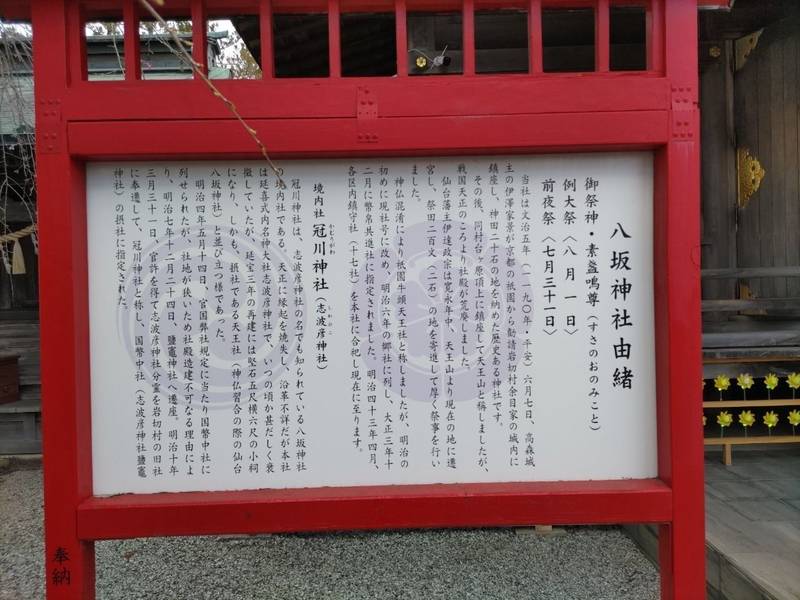 八坂神社由緒
御祭神・素盞嗚尊(すさのおのみこと)
例大祭〈八月一日〉
前夜祭〈七月三十一日〉
当社は文治五年(一一九〇年・平安)六月七日、高森城
主の伊澤家景が京都の祇園から勧請岩切村余目家の城内に
鎮座し、神田二十石の地を納めた歴史ある神社です。
その後、同村台ヶ原頂上に鎮座して天王山と称しましたが、
戦国天正のころより社殿が荒廃しました。
仙台藩主伊達政宗は寛永年中、天王山より現在の地に遷
宮し、祭田二百文(二石)の地を寄進して厚く祭事を行い
ました。
神仏混淆により祇園牛頭天王社と称しましたが、明治の
初めに現社号に改め、明治六年の郷社に列し、大正三年十
二月に幣帛共進社に指定されました。明治四十三年四月、
各区内鎮守社(十七社)を本社に合祀し現在に至ります。
境内社 冠川神社(志波彦神社)
かむりがわ
しわひこ
冠川神社は、志波彦神社の名でも知られている八坂神社
の境内社である。天正に縁起を焼失し、沿革不詳だが本社
は延喜式内名神大社志波彦神社で、いつの頃か甚だしく衰
微していたが、延宝三年の再建には堅石五尺横六尺の小祠
になり、しかも、摂社である天王社(神仏習合の際の仙台
八坂神社)と並び立つ様であった。
明治四年五月十四日、官国弊社規定に当たり国幣中社に
列せられたが、社地が狭いため社殿造建不可なる理由によ
り、明治七年十二月二十四日、鹽竈神社へ遷座。明治十年
三月三十一日、官許を得て志波彦神社分霊を岩切村の旧社
に奉遷して、冠川神社と称し、国幣中社(志波彦神社鹽竈
神社)の摂社に指定された。
奉納